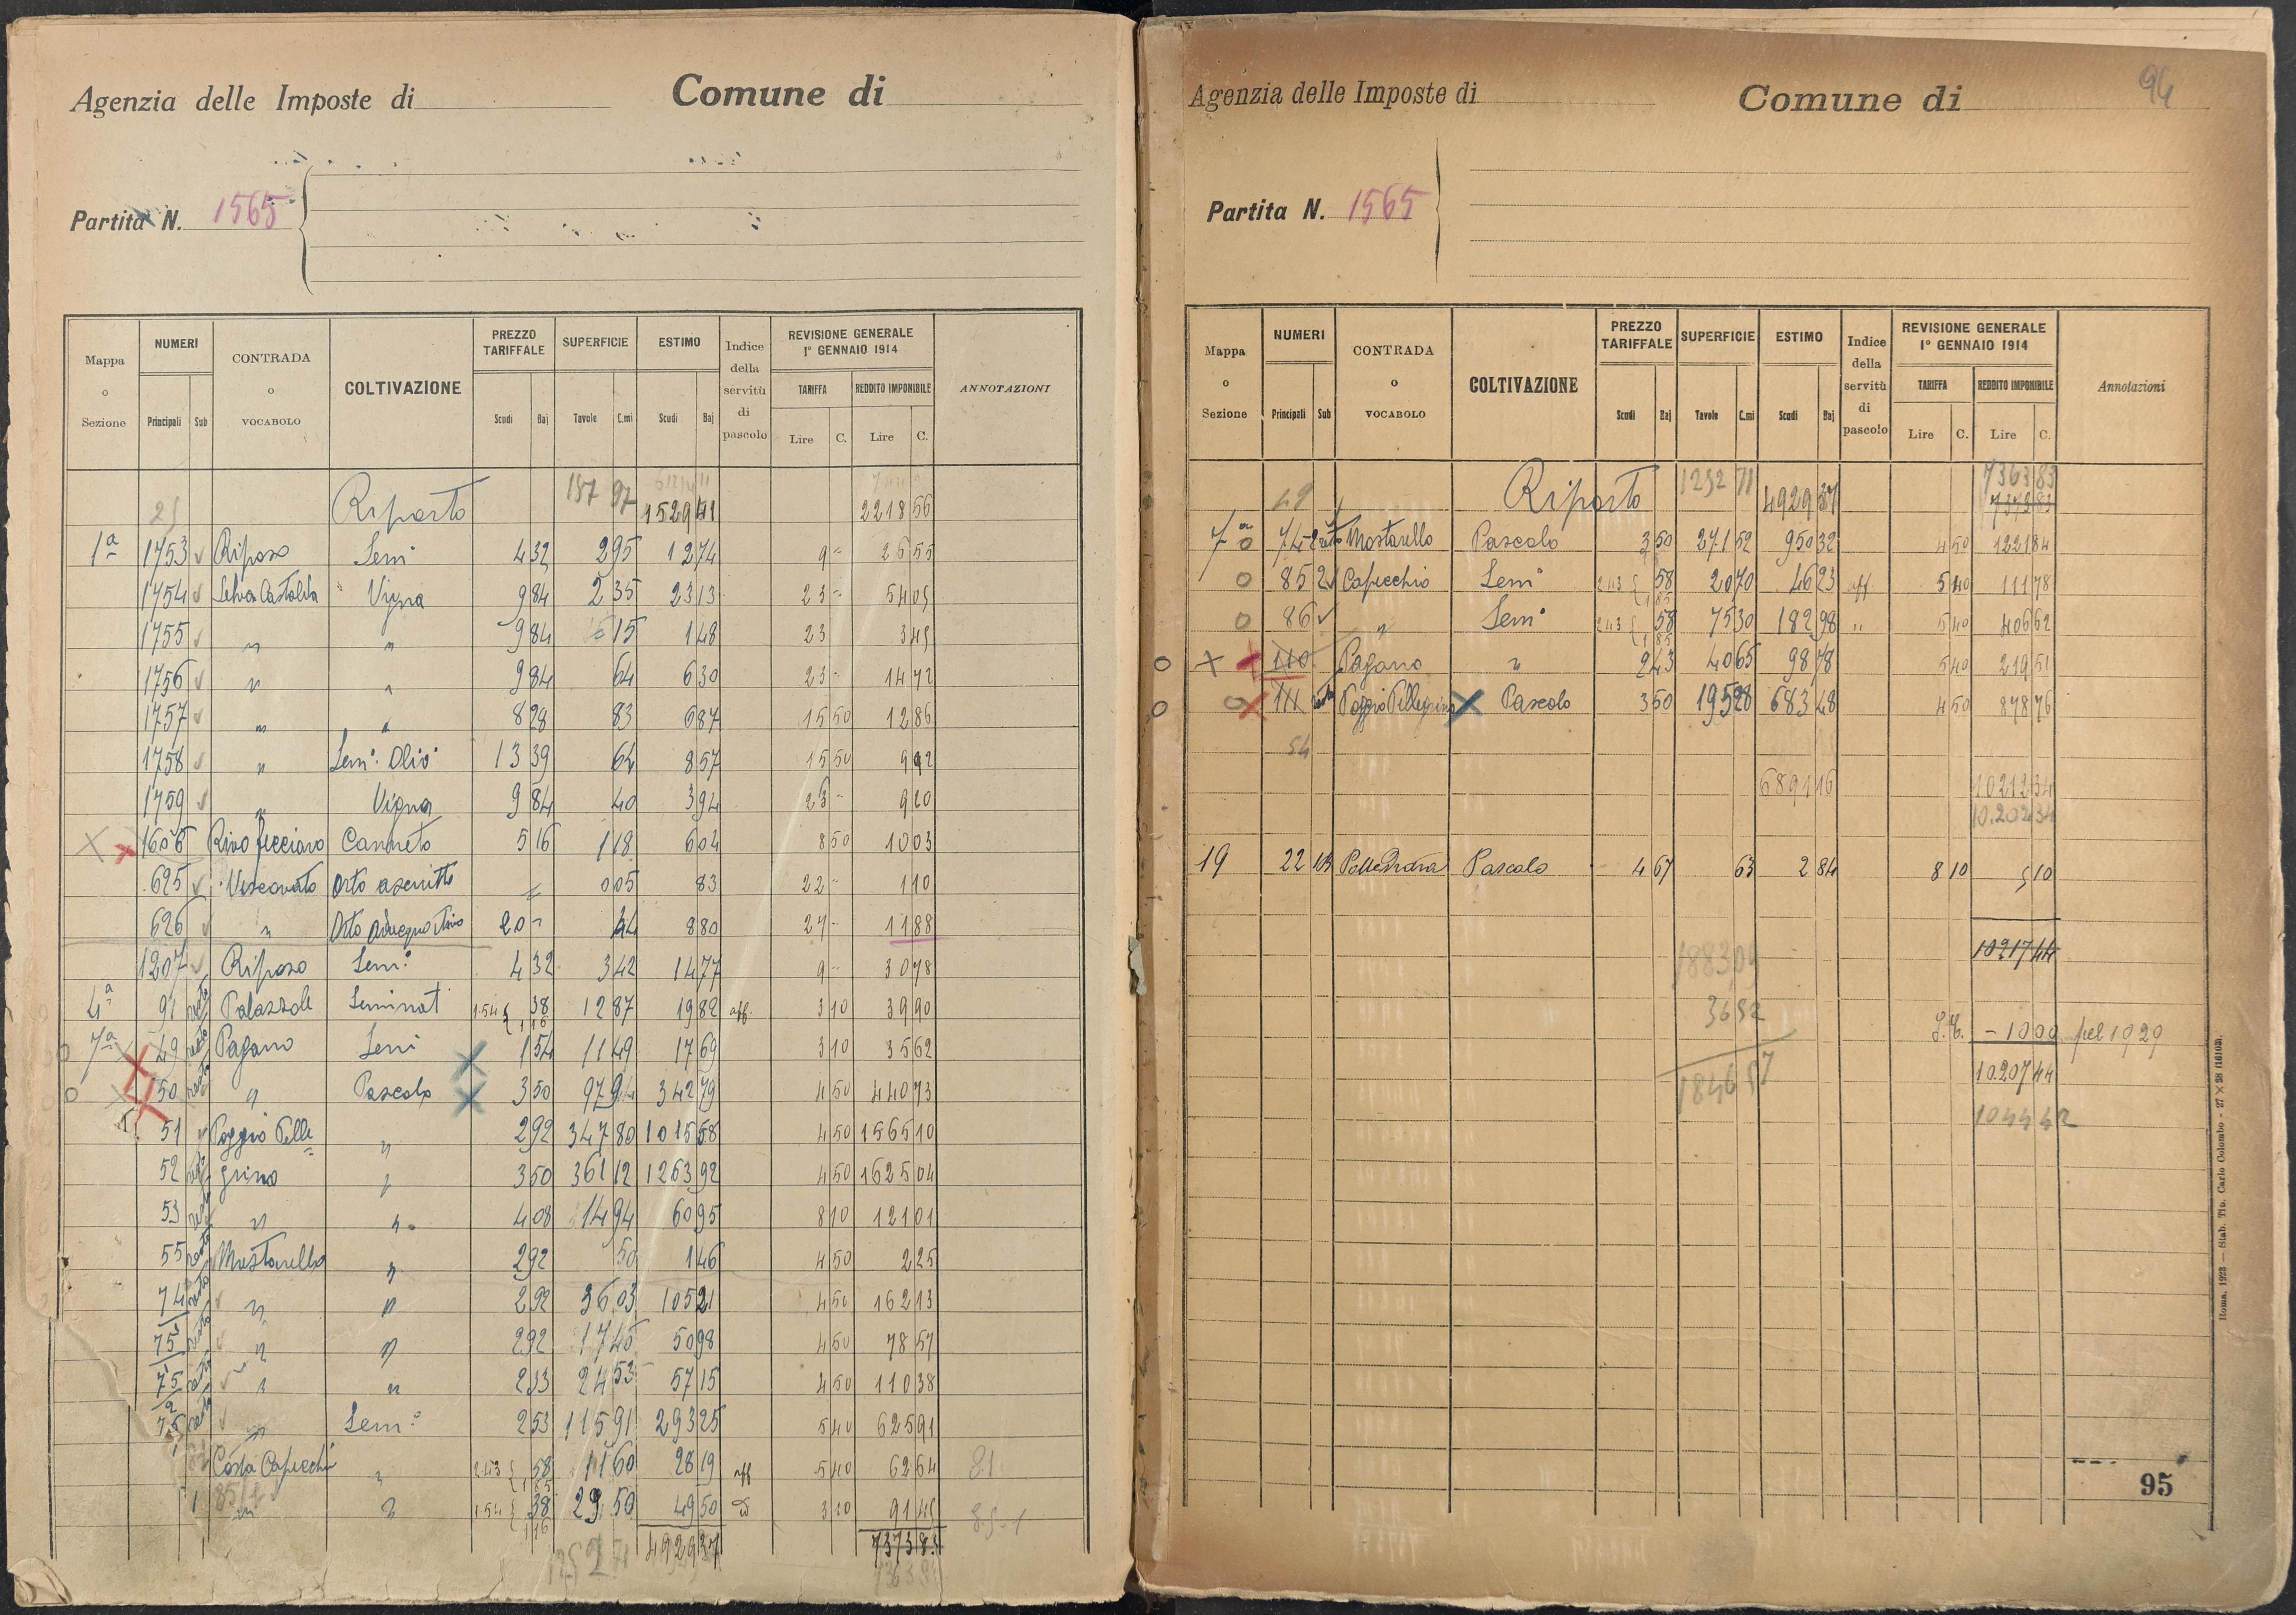 Agenzia delle Imposte di Comune di
Partita N. 1565
Mappa o Sezione
NUMERI
Principali Sub
CONTRADA o VOCABOLO
COLTIVAZIONE
PREZZO TARIFFALE
Scudi Baj
SUPERFICIE
Tavole C.mi
ESTIMO
Scudi Baj
Indice della servitù di pascolo
REVISIONE GENERALE 1° GENNAIO 1914
TARIFFA
Lire C.
REDDITO IMPONIBILE
Lire C.
ANNOTAZIONI
25 Riporto 187 97 1529 41 2218 56
1ª 1753 Riposo Semi 4 32 2 95 12 74 9 - 26 55
1754 Selva Castalda Vigna 9 84 2 35 23 13 23 - 54 05
1755 " " 9 84 15 1 48 23 3 45
1756 " " 9 84 64 6 30 23 - 14 72
1757 " " 8 28 83 6 87 15 50 12 86
1758 " Sem: Olio 13 39 64 8 57 15 50 9 92
1759 " Vigna 9 84 40 3 94 23 - 9 20
1605 Rivo Fecciaro Canneto 5 16 1 18 6 04 8 50 10 03
625 Vescovato Orto asciutto 0 05 83 22 - 1 10
626 " Orto 20 - 44 8 80 27 - 11 88
1207 Riposo Sem: 4 32 3 42 14 77 9 - 30 78
4ª 91 resto Palazzole Seminat 1.54 { 38 1,16 12 87 19 82 aff. 3 10 39 90
7ª 49 resto Pagano Semi 1 54 11 49 17 69 3 10 35 62
50 resto " Pascolo 3 50 97 94 342 79 4 50 440 73
51 Poggio Pelle= " 2 92 347 80 1015 58 4 50 1565 10
52 grino " 3 50 361 12 1263 92 4 50 1625 04
53 " " 4 08 14 94 60 95 8 10 121 01
55 resto Mostarello " 2 92 50 1 46 4 50 2 25
74 resto " " 2 92 36 03 105 21 4 50 162 13
75/1 resto " " 2 92 17 46 50 98 4 50 78 57
75/2 resto " " 2 33 24 53 57 15 4 50 110 38
75 resto " Sem: 2 53 115 91 293 25 5 40 625 91
Costa Capecchi " 2.43 { 58 1,85 11 60 28 19 aff 5 40 62 64 81
85/1 " " 1.54 { 38 1,16 29 50 49 50 3 10 91 45 85-1
4929 37 7373 83
Agenzia delle Imposte di Comune di
94
Partita N. 1565
Mappa o Sezione
NUMERI
Principali Sub
CONTRADA o VOCABOLO
COLTIVAZIONE
PREZZO TARIFFALE
Scudi Baj
SUPERFICIE
Tavole C.mi
ESTIMO
Scudi Baj
Indice della servitù di pascolo
REVISIONE GENERALE 1° GENNAIO 1914
TARIFFA
Lire C.
REDDITO IMPONIBILE
Lire C.
Annotazioni
7363 83
49 Riporto 1292 71 4929 37 7373 83
7ª 74 2 resto Mostarello Pascolo 3 50 271 52 950 32 4 50 1221 84
85 2 Capecchio Sem: 2.43 { 58 1,85 20 70 46 23 aff 5 40 111 78
86 " Sem: 2.43 { 58 1,85 75 30 182 98 " 5 40 406 62
110 Pagano " 2 43 40 65 98 78 5 40 219 51
111 Poggio Pellegrino Pascolo 3 50 195 28 683 48 4 50 878 76
54
6891 16 10212 34
10.202 34
19 22 Pascolo 4 67 63 2 84 8 10 5 10
10217 44
1883 09
36 52
1846 57
- 10 00 pel 1929
10207 44
10444 2
Roma, 1923 — Stab. Tip. Carlo Colombo - 27 × 38 (16103).
95